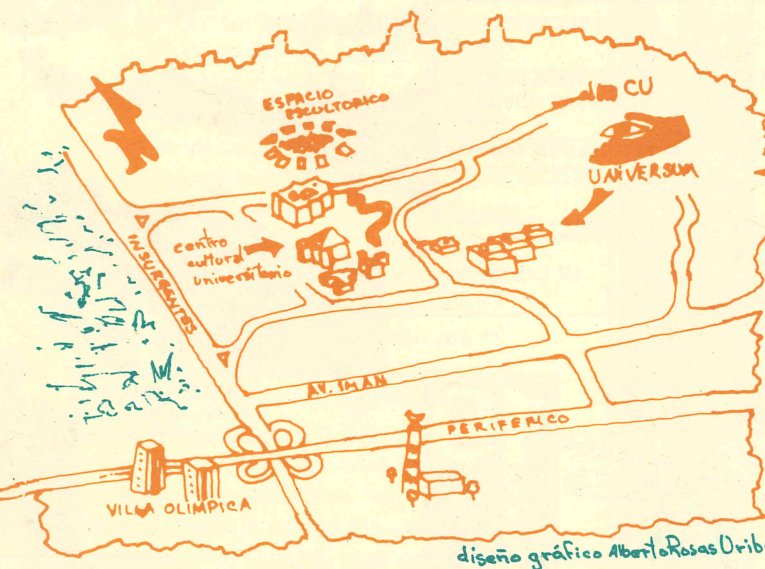 CU
ESPACIO
ESCULTORICO
UNIVERSUM
centro
cultural
universitario
INSURGENTES
AV. IMAN
PERIFERICO
VILLA OLIMPICA
diseño gráfico Alberto Rosas Uribe